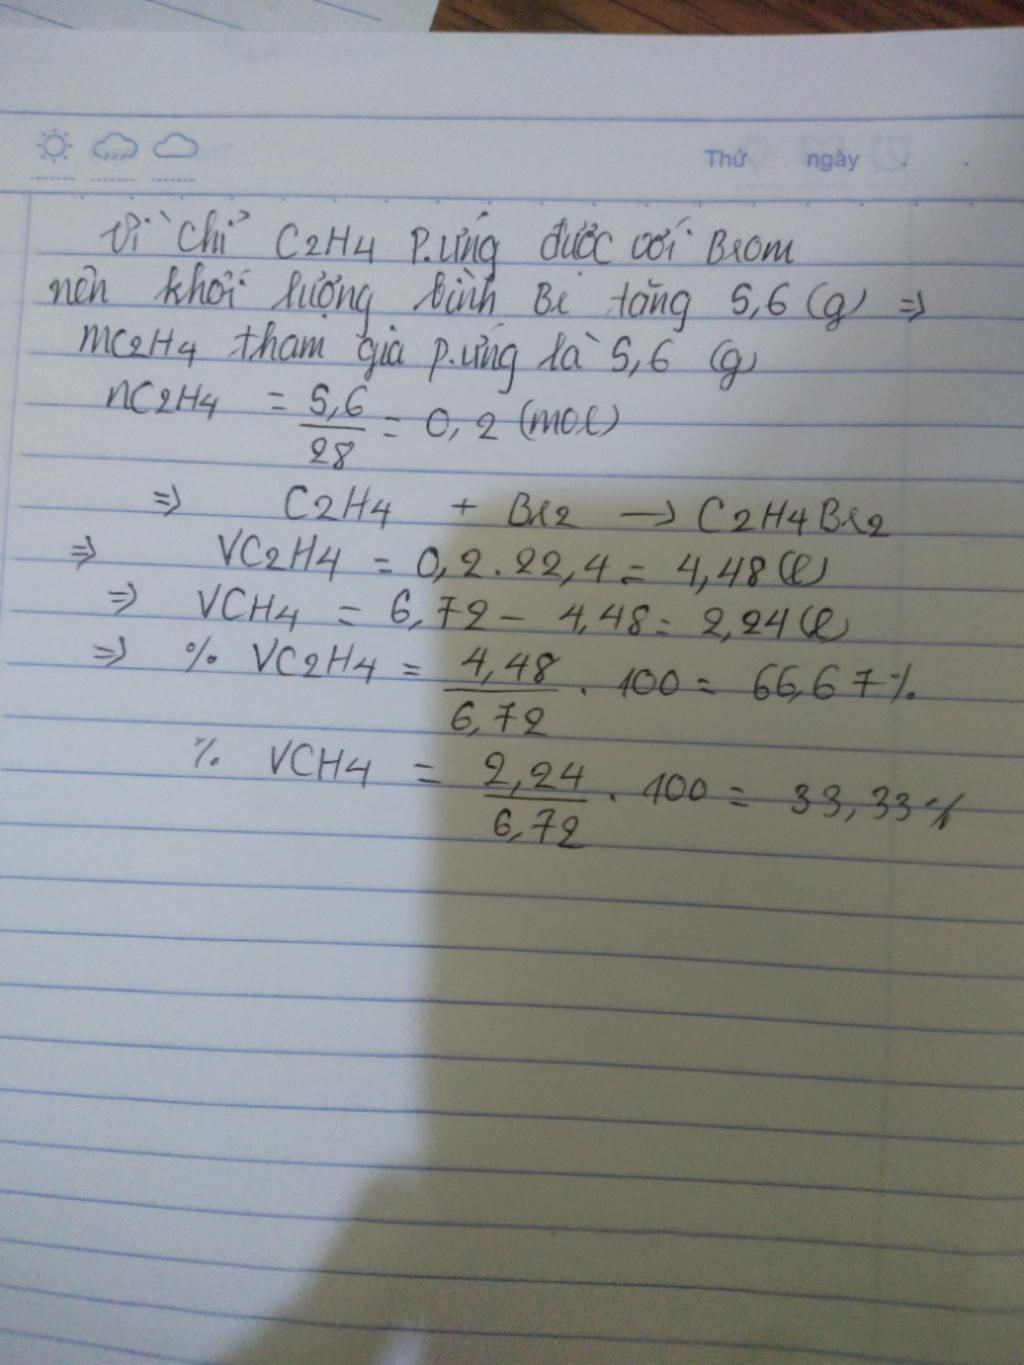 Thứ ngày
Vì chỉ C2H4 p.ứng được với Brom
nên khối lượng bình Br tăng 5,6 (g) =>
mC2H4 tham gia p.ứng là 5,6 (g)
nC2H4 = 5,6/28 = 0,2 (mol)
=> C2H4 + Br2 → C2H4Br2
=> VC2H4 = 0,2.22,4 = 4,48 (l)
=> VCH4 = 6,72 - 4,48 = 2,24 (l)
=> % VC2H4 = 4,48/6,72 . 100 = 66,67%
% VCH4 = 2,24/6,72 . 100 = 33,33%